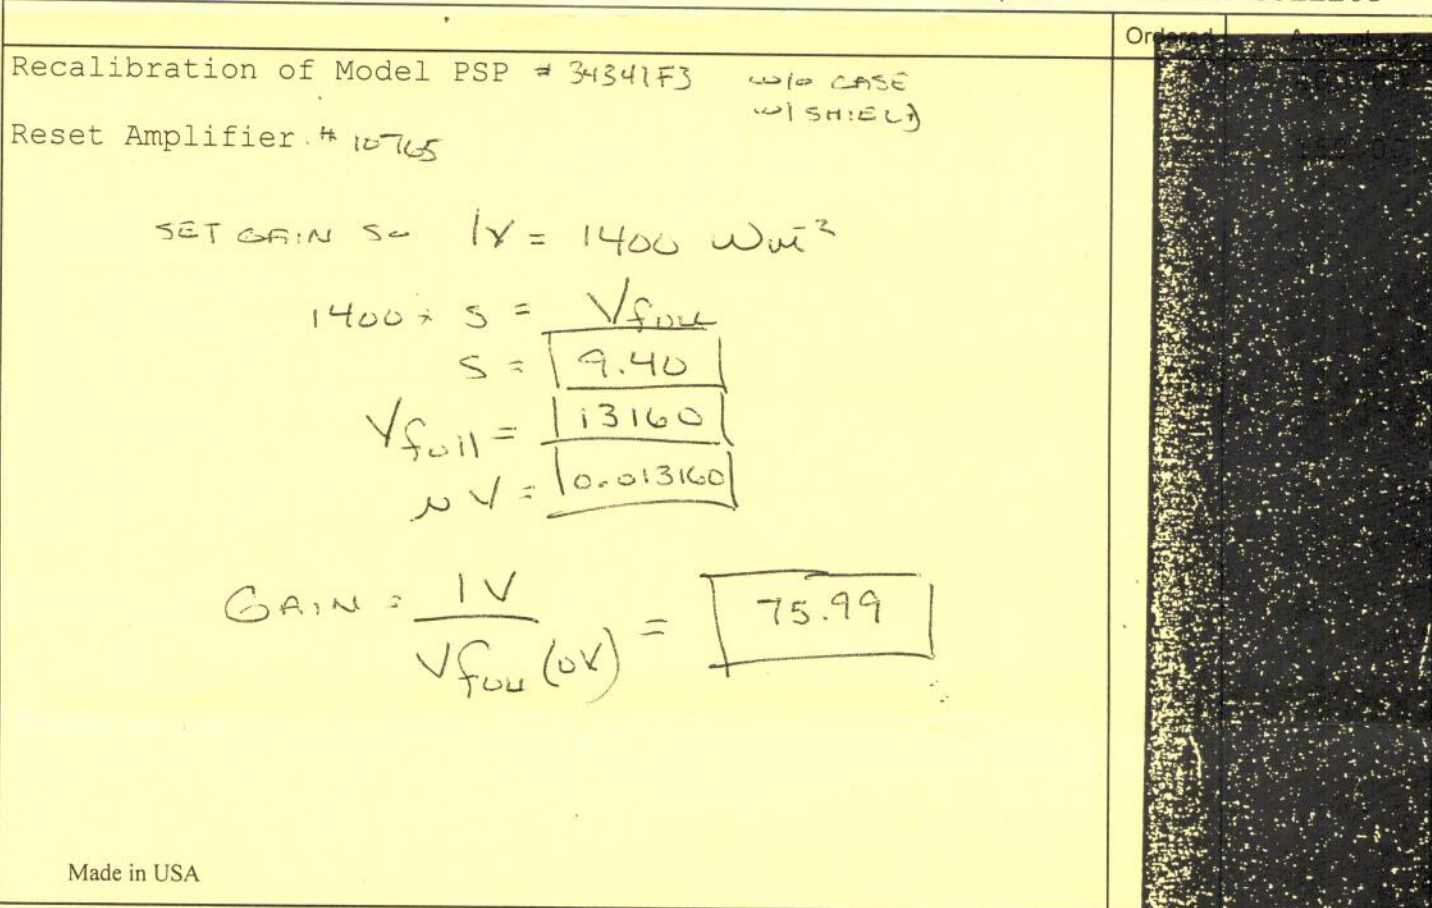 Ordered Amount
Recalibration of Model PSP # 34341F3 w/o CASE
w/ SHIELD
Reset Amplifier # 10765
SET GAIN SO 1V = 1400 Wm⁻²
1400 * S = Vfull
S = 9.40
Vfull = 13160
μV = 0.013160
GAIN = 1V / Vfull (0V) = 75.99
Made in USA